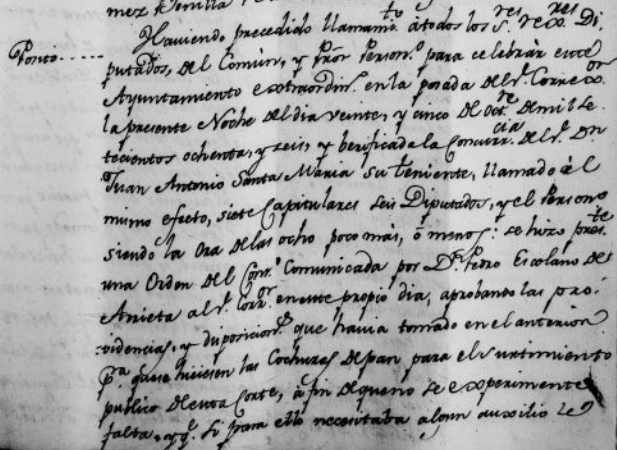 mez
Haviendo precedido llamamto. á todos los Sres. Rexres. Di
Posito putados, del Comun, y Pror. Person.o para celebrár este
Ayuntamiento extraordin.o en la posada del Sr. Correxor.
la presente Noche del dia veinte, y cinco de Octre. de mil Se
tecientos ochenta, y seis, y berificada la Concurrcia. del Sr. Dn
Juan Antonio Santa Maria su theniente, llamado á el
mismo efecto, siete Capitulares seis Diputados, y el Person.o
siendo la Ora de las ocho poco más, ó menos: se hizo preste.
una Orden del Cons.o Comunicada por Dn. Pedro Escolano de
Arrieta al Sr. Corror. en este propio dia, aprobando las pro-
videncias, y disposicion.s que havia tomado en el anterior
pa. que se hiciesen las Cochuras de pan para el surtimiento
publico de esta Corte, á fin de que no se experimente
falta, y q.e si para ello necesitaba algun auxilio se